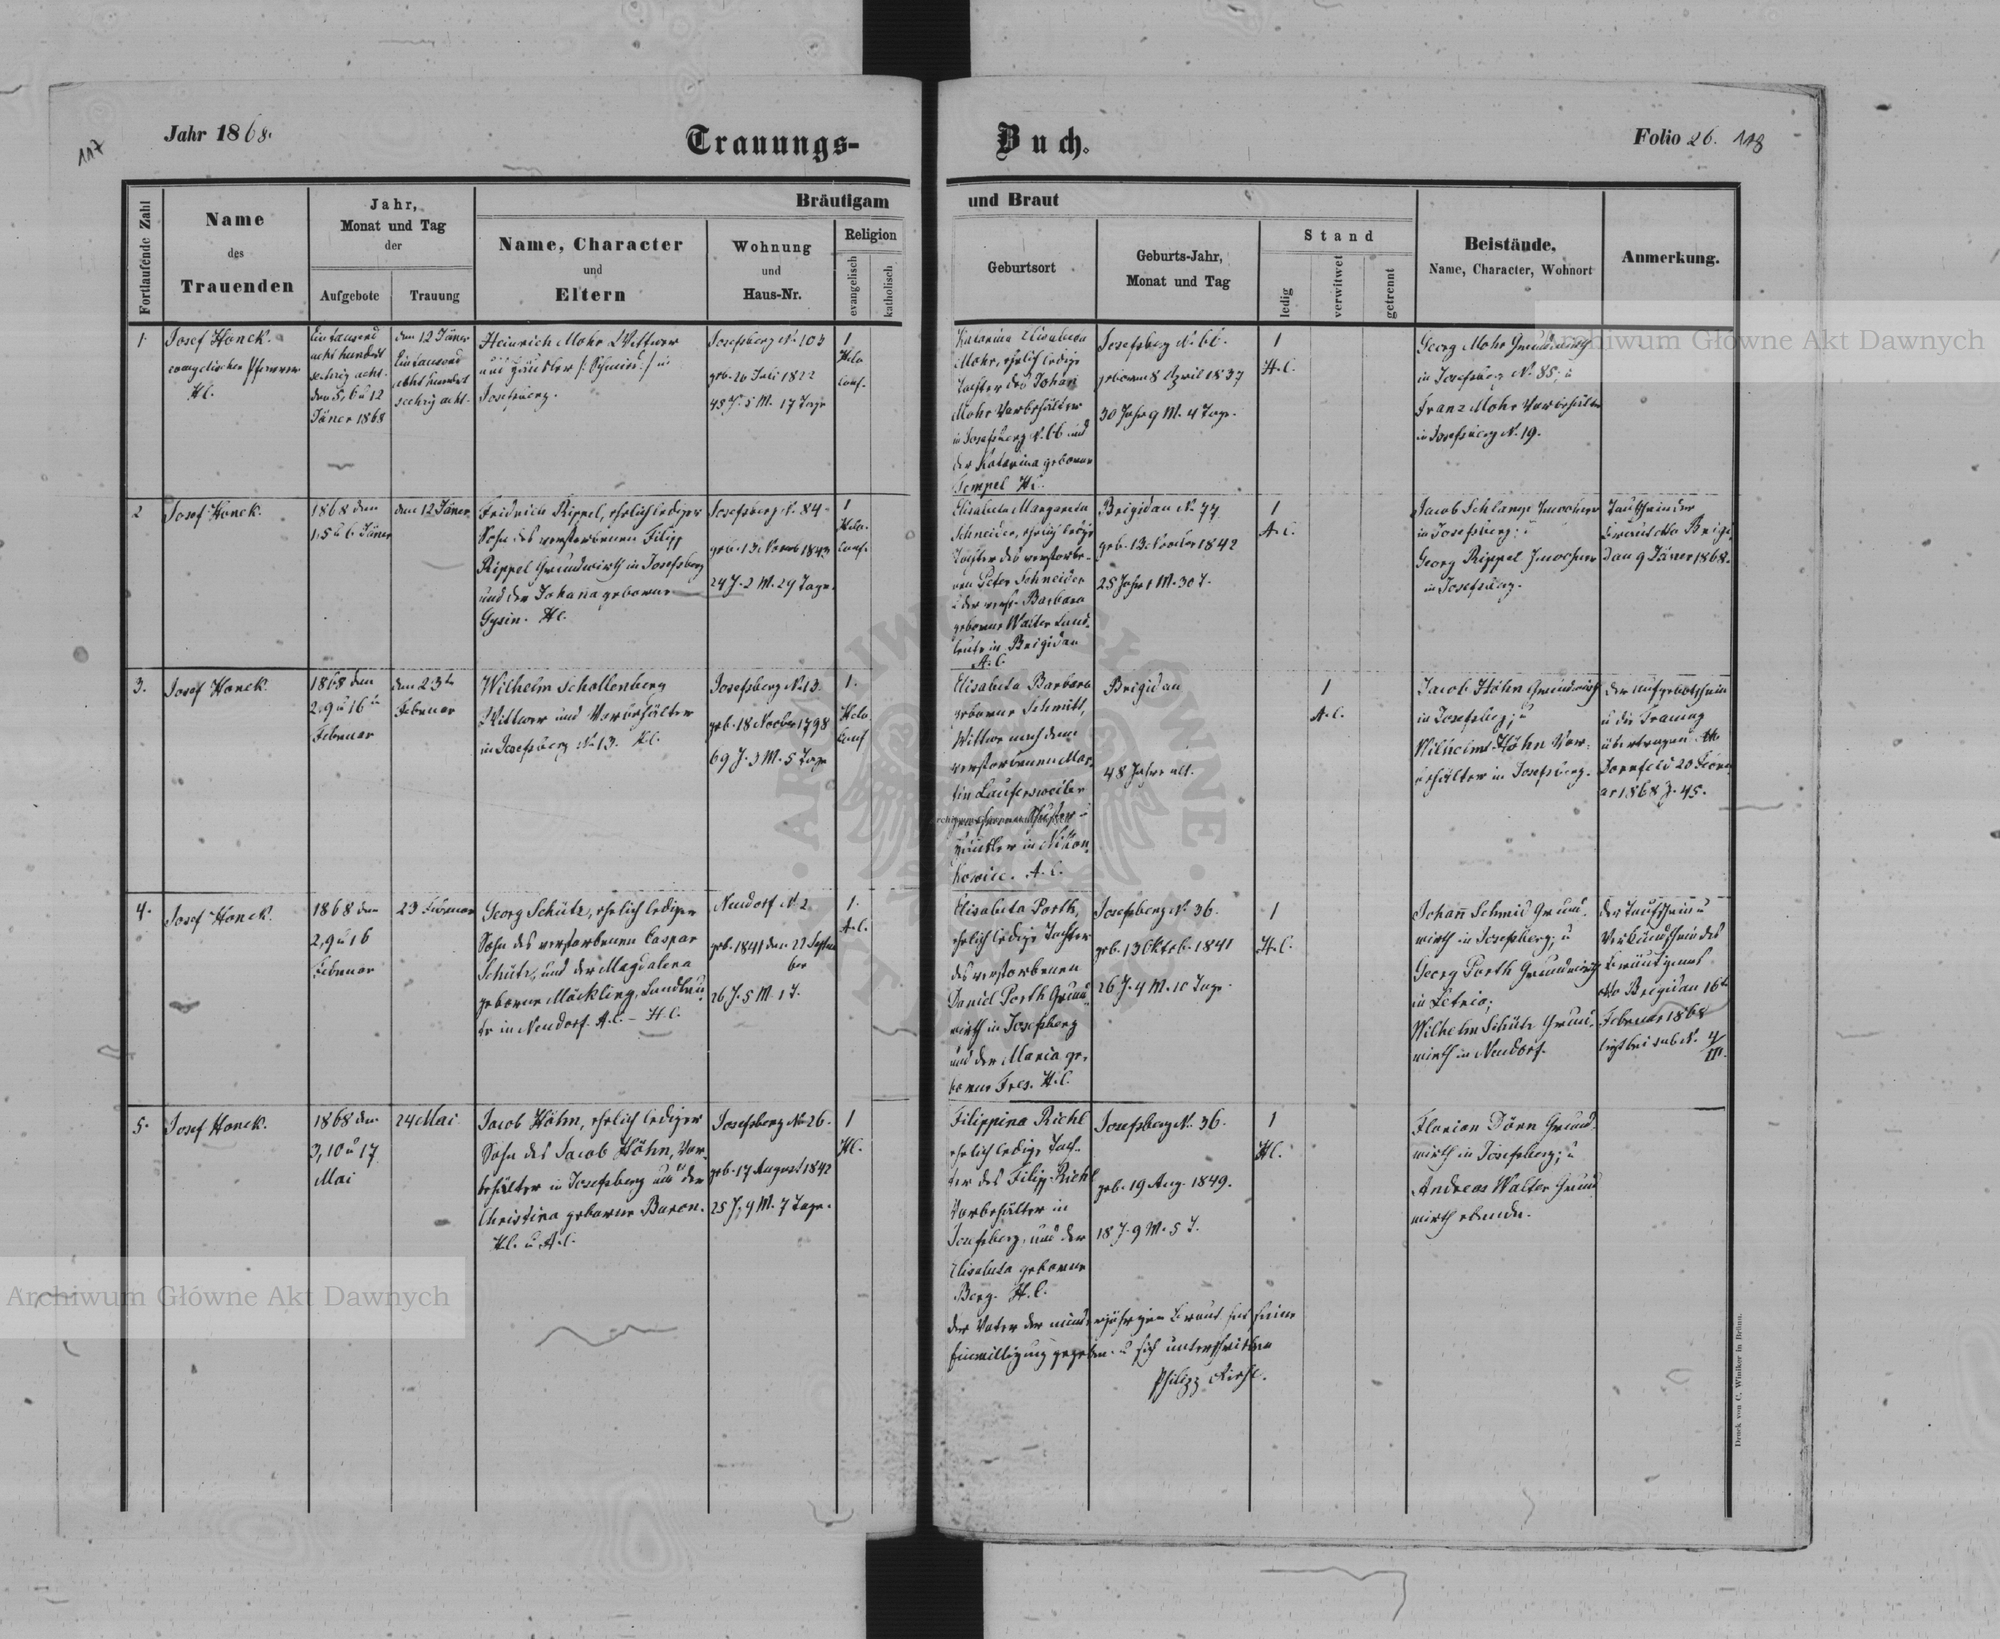 Jahr 1868.
117
Trauungs-
Buch.
Folio 26. 118
Fortlaufende Zahl
Name
des
Trauenden
Jahr,
Monat und Tag
der
Aufgebote
Trauung
Bräutigam
und Braut
Name, Character
und
Eltern
Wohnung
und
Haus-Nr.
Religion
evangelisch
katholisch
Geburtsort
Geburts-Jahr,
Monat und Tag
Stand
ledig
verwitwet
getrennt
Beistände,
Name, Character, Wohnort
Anmerkung.
1.
Josef Honck.
evangelischer Pfarrer
H.C.
Eintausend
acht hundert
sechzig acht.
den 5, 6 u 12
Jäner 1868
den 12 Jäner
Eintausend
achthundert
sechzig acht.
Heinrich Mohr Wittwer
und Häusler /: Schmied :/ in
Josefsberg.
Josefsberg N. 103
geb. 26 Juli 1822
45 J. 5 M. 17 Tage
1
Helv.
Conf.
Katarina Elisabeta
Mohr, ehrlich ledige
Tochter des Johan
Mohr Vorbehälter
in Josefsberg N. 66 und
der Katarina geborne
Tempel H.C.
Josefsberg N. 66.
geboren 8 April 1837
30 Jahr 9 M. 4 Tage.
1
H.C.
Georg Mohr Grundwirth
in Josefsberg N. 85; u
Franz Mohr Vorbehälter
in Josefsberg N. 19.
2
Josef Honck.
1868 den
1, 5 u 6 Jäner
den 12 Jäner.
Fridrich Rippel, ehrlich lediger
Sohn des verstorbenen Filipp
Rippel Grundwirth in Josefsberg
und der Johana geborne
Gysin. H.C.
Josefsberg N. 84
geb. 13 Novemb 1843
24 J. 2 M. 29 Tage.
1
Helv.
Conf.
Elisabeta Margareta
Schneider, ehrlich ledige
Tochter des verstorbe-
nen Peter Schneider
u der verst. Barbara
geborne Walter Land-
leute in Brigidau
A.C.
Brigidau N. 77
geb. 13 November 1842
25 Jahr 1 M. 30 T.
1
A.C.
Jacob Schlang Inwohner
in Josefsberg; u
Georg Rippel Inwohner
in Josefsberg.
Taufschein der
Braut dto Brigi
dau 9 Jäner 1868.
3.
Josef Honck.
1868 den
2, 9 u 16 u
Februar
den 23te
Februar
Wilhelm Schollenberg
Wittwer und Vorbehälter
in Josefsberg N. 13. H.C.
Josefsberg N. 13.
geb. 18 November 1798
69 J. 3 M. 5 Tage
1.
Helv.
Conf
Elisabeta Barbara
geborne Schmitt,
Wittwe nach dem
verstorbenen Mar-
tin Laufersweiler
gewesenen Schuster u
Häusler in Nikon-
kowice. A.C.
Brigidau
48 Jahre alt.
1
A.C.
Jacob Höhn Grundwirth
in Josefsberg; u
Wilhelm Höhn Vor-
behälter in Josefsberg.
Der Aufgebotschein
u die Trauung
übertragen dto
Dornfeld 20 Febru
ar 1868 Z. 45.
4.
Josef Honck.
1868 den
2, 9 u 16
Februar
23 Februar
Georg Schütz, ehrlich lediger
Sohn des verstorbenen Caspar
Schütz, und der Magdalena
geborne Möckling, Landleu-
te in Neudorf. A.C. – H.C.
Neudorf N. 2
geb. 1841 den 22 Septem
ber
26 J. 5 M. 1 T.
1.
A.C.
Elisabeta Porth,
ehrlich ledige Tochter
des verstorbenen
Daniel Porth Grund-
wirth in Josefsberg
und der Maria ge-
borne Fres. H.C.
Josefsberg N. 36.
geb. 13 Oktob. 1841
26 J. 4 M. 10 Tage.
1
H.C.
Johann Schmid Grund-
wirth in Josefsberg; u
Georg Porth Grundwirth
in Letnia;
Wilhelm Schütz Grund-
wirth in Neudorf.
Der Taufschein u
Verkündschein des
Bräutigams
dto Brigidau 16te
Februar 1868
liegt bei sub N. 4/III.
5.
Josef Honck.
1868 den
3, 10 u 17
Mai
24 Mai
Jacob Höhn, ehrlich lediger
Sohn des Jacob Höhn, Vor-
behälter in Josefsberg und der
Christina geborne Baron.
H.C. u A.C.
Josefsberg N. 26.
geb. 17 August 1842
25 J. 9 M. 7 Tage.
1
H.C.
Filippina Richl
ehrlich ledige Toch-
ter des Filipp Richl
Vorbehälter in
Josefsberg, und der
Elisabeta geborne
Berg. H.C.
Josefsberg N. 36.
geb. 19 Aug. 1849.
18 J. 9 M. 5 T.
1
H.C.
Florian Dörn Grund-
wirth in Josefsberg; u
Andreas Walter Grund
wirth ebenda.
Der Vater der minderjährigen Braut hat seine
Einwilligung gegeben. u sich unterschrieben
Philipp Richl.
Druck von C. Winiker in Brünn.
Archiwum Główne Akt Dawnych
Archiwum Główne Akt Dawnych
ARCHIWUM GŁÓWNE AKT